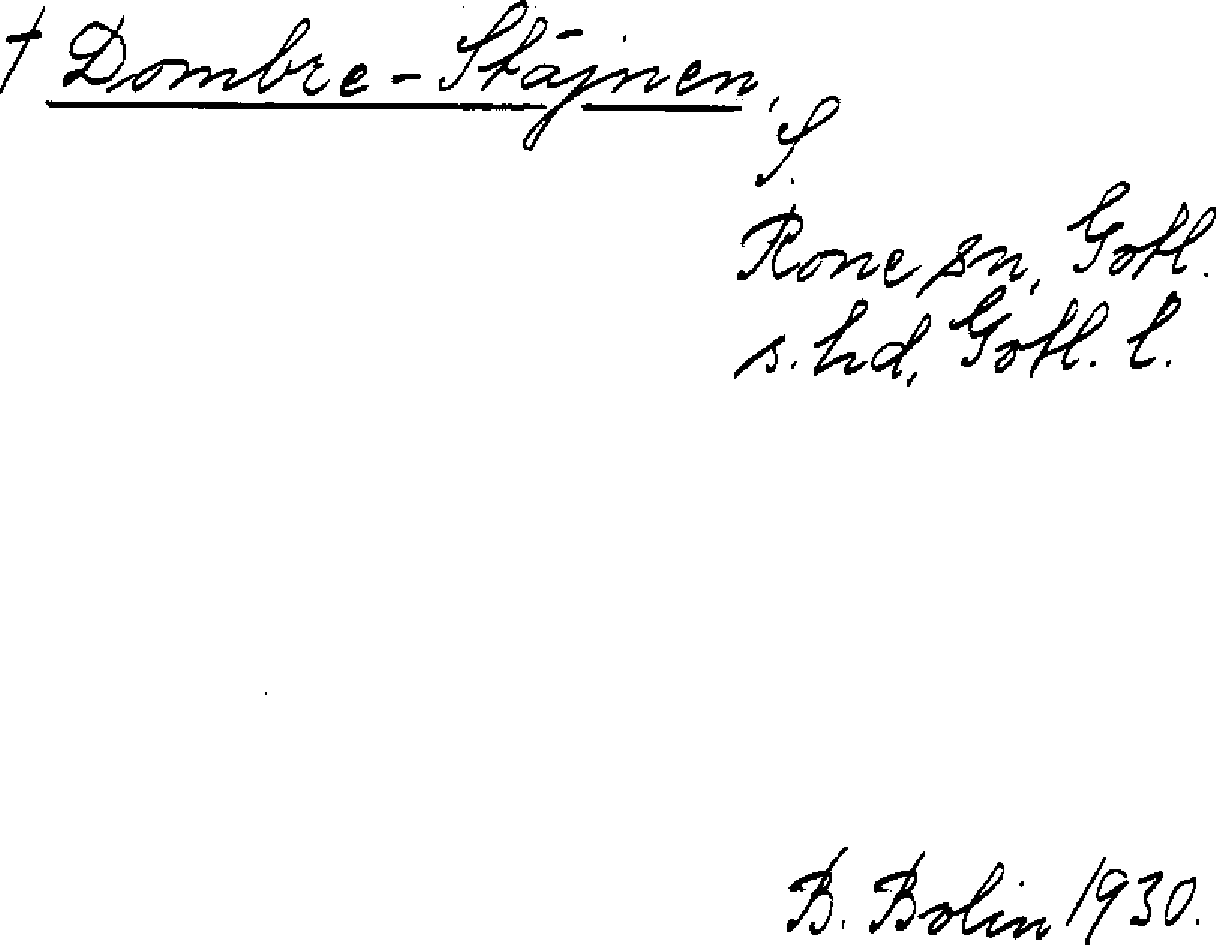 † Dombre-Stäjnen,
S.
Rone sn, Gotl.
s. hd, Gotl. l.
B. Bolin 1930.